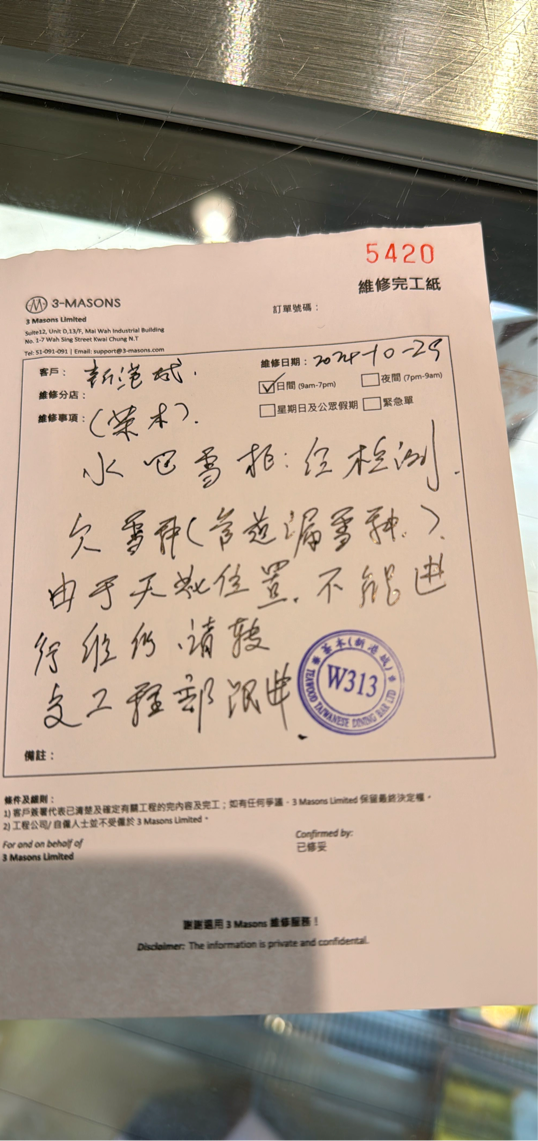 5420
維修完工紙
3-MASONS
訂單號碼：
3 Masons Limited
Suite12, Unit D,13/F, Mai Wah Industrial Building
No. 1-7 Wah Sing Street Kwai Chung N.T
Tel: 51-091-091 | Email: support@3-masons.com
客戶： 新港城. 維修日期：2024-10-29
維修分店： ☑日間 (9am-7pm) ☐夜間 (7pm-9am)
維修事項： (茶木). ☐星期日及公眾假期 ☐緊急單
水吧雪柜：经检测.
欠雪种(管道漏雪种.).
由于天花位置.不能进
行维修.请转
交工程部跟进.
茶木(新港城)
W313
TEAWOOD TAIWANESE DINING BAR LTD
備註：
條件及細則：
1) 客戶簽署代表已清楚及確定有關工程的完內容及完工；如有任何爭議，3 Masons Limited 保留最終決定權。
2) 工程公司/自僱人士並不受僱於 3 Masons Limited。
For and on behalf of
3 Masons Limited
Confirmed by:
已修妥
謝謝選用 3 Masons 維修服務！
Disclaimer: The information is private and confidental.